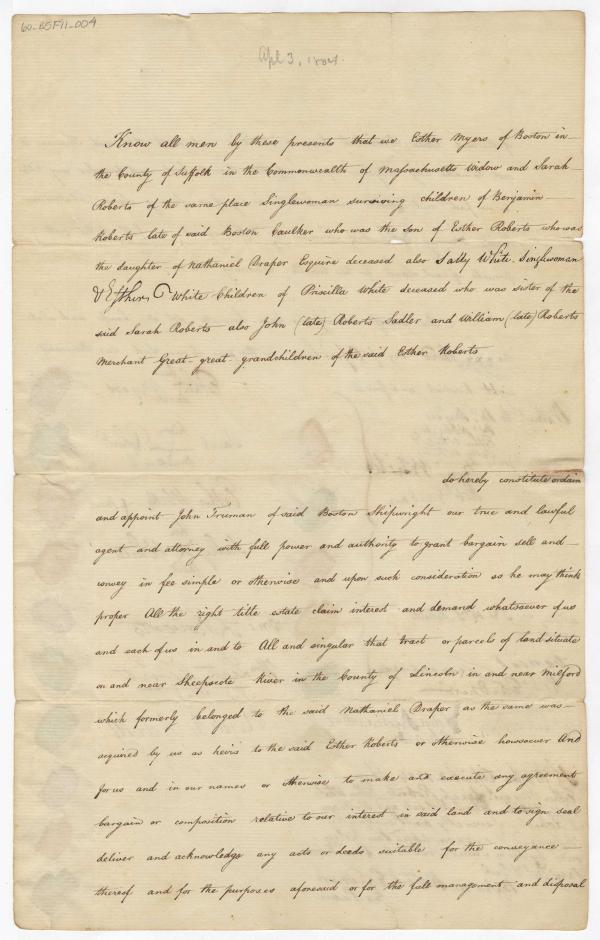 60-B5F11-004
Apl 3, 1804.
Know all men by these presents that we Esther Myers of Boston in
the County of Suffolk in the Commonwealth of Massachusetts Widow and Sarah
Roberts of the same place Singlewoman surviving children of Benjamin
Roberts late of said Boston Caulker who was the son of Esther Roberts who was
the daughter of Nathaniel Draper Esquire deceased also Sally White Singlewoman
& Esther White Children of Priscilla White deceased who was sister of the
said Sarah Roberts also John (tate) Roberts Sadler and William (tate) Roberts
Merchant Great-great grandchildren of the said Esther Roberts
do hereby constitute ordain
and appoint John Truman of said Boston Shipwright our true and lawful
agent and attorney with full power and authority to grant bargain sell and
convey in fee simple or otherwise and upon such consideration as he may think
proper All the right title estate claim interest and demand whatsoever of us
and each of us in and to All and singular that tract or parcels of land situate
on and near Sheepscote River in the County of Lincoln in and near Milford
which formerly belonged to the said Nathaniel Draper as the same was
acquired by us as heirs to the said Esther Roberts or otherwise howsoever And
for us and in our names or otherwise to make and execute any agreements
bargain or composition relative to our interest in said land and to sign seal
deliver and acknowledge any acts or deeds suitable for the conveyance
thereof and for the purposes aforesaid or for the full management and disposal